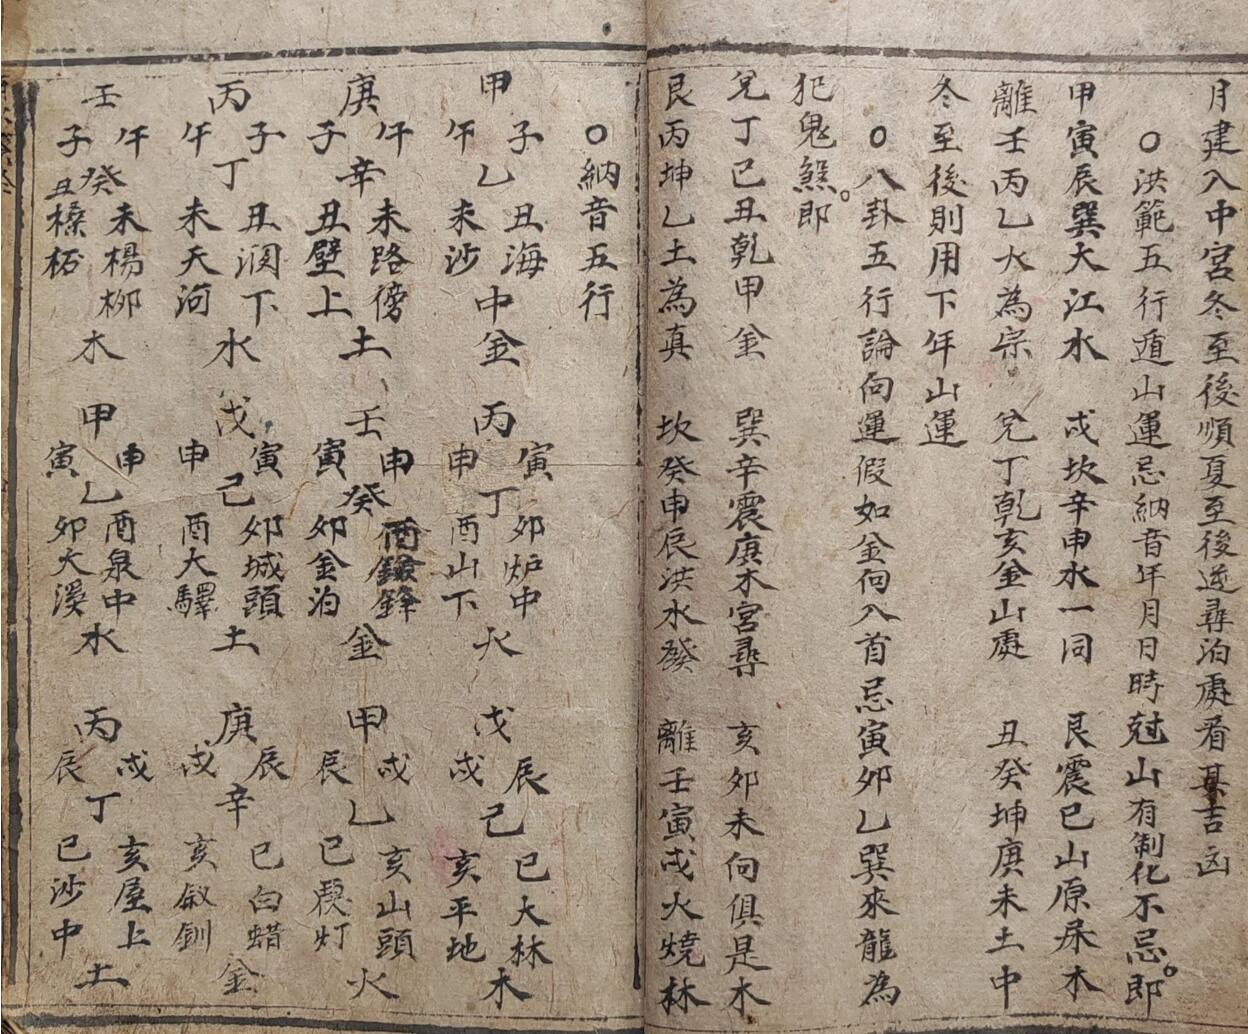 月建入中宮冬至後順夏至後逆尋泊處看其吉凶
○洪範五行遁山運忌納音年月日時尅山有制化不忌。即
甲寅辰巽大江水 戌坎辛申水一同 艮震巳山原屎木
離壬丙乙火為宗 兌丁乾亥金山處 丑癸坤庚未土中
冬至後則用下年山運
○八卦五行論向運假如金向入首忌寅卯乙巽來龍為
犯鬼煞。即
兌丁巳丑乾甲金 巽辛震庚木宮尋 亥卯未向俱是木
艮丙坤乙土為真 坎癸申辰洪水發 離壬寅戌火燒林
○納音五行
甲 子午 乙 丑海 未沙 中金 丙 寅申 丁 卯炉中 酉山下 火 戊 辰戌 己 巳大林 亥平地 木
庚 午子 辛 未路傍 丑壁上 土 壬 申寅 癸 酉鎩鋒 卯金泊 金 甲 戌辰 乙 亥山頭 巳覆灯 火
丙 子午 丁 丑澗下 未天河 水 戊 寅申 己 卯城頭 酉大驛 土 庚 辰戌 辛 巳白蜡 亥釵釧 金
壬 午子 癸 未楊柳 丑桑柘 木 甲 申寅 乙 酉泉中 卯大溪 水 丙 戌辰 丁 亥屋上 巳沙中 土